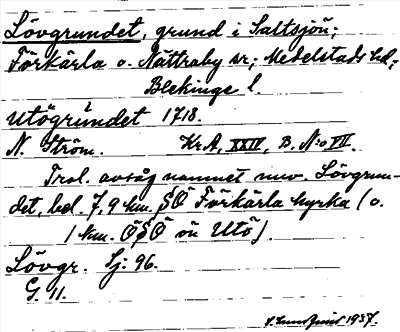 Lövgrundet, grund i Saltsjön;
Förkärla o. Nättraby sr; Medelstads hd;
Blekinge l.
Utögrundet 1718.
N. Ström. Kr.A, XXIV, B. N:o VII.
Trol. avsåg namnet nuv. Lövgrun-
det, bel. 7,9 km. SÖ Förkärla kyrka (o.
1 km. ÖSÖ om Utö).
Lövgr. Sj. 96.
G. 11.
1937.